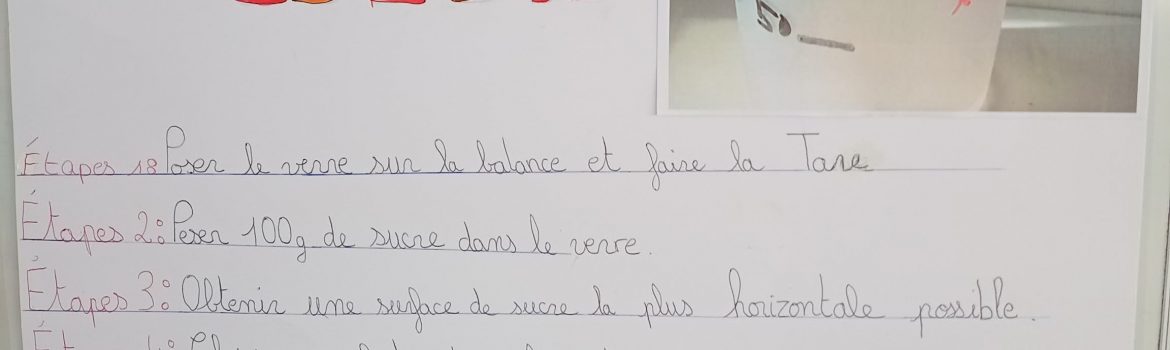 50
Étapes 1: Poser le verre sur la balance et faire la Tare
Étapes 2: Peser 100g de sucre dans le verre.
Étapes 3: Obtenir une surface de sucre la plus horizontale possible.